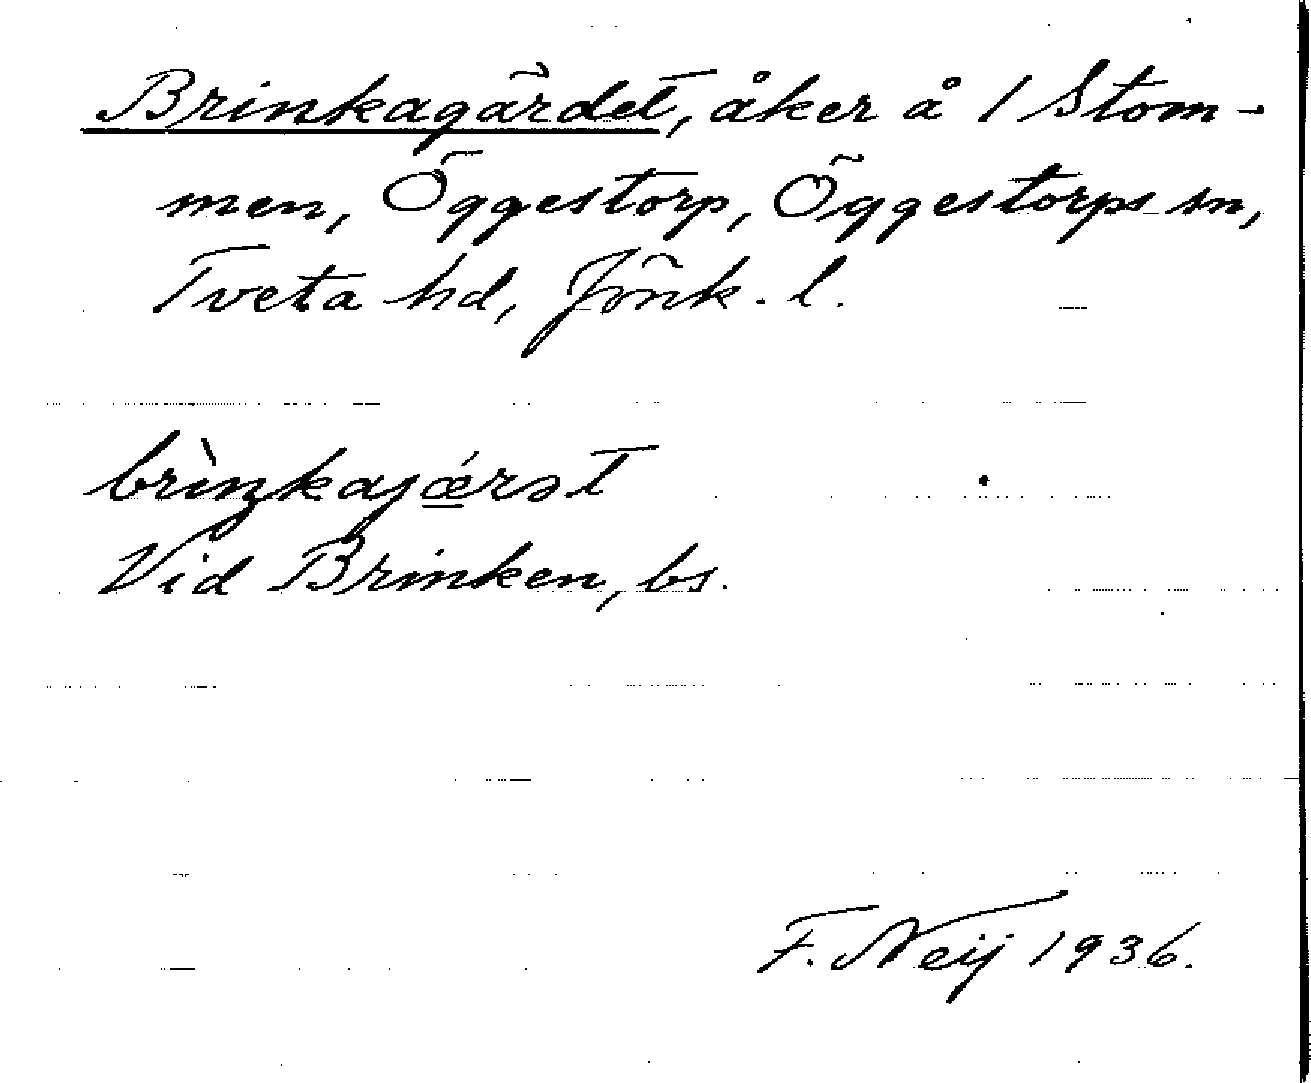 Brinkagärdet, åker å 1 Stom-
men, Öggestorp, Öggestorps sn,
Tveta hd, Jönk. l.
brìŋkajǽrət
Vid Brinken, bs.
F. Neij 1936.